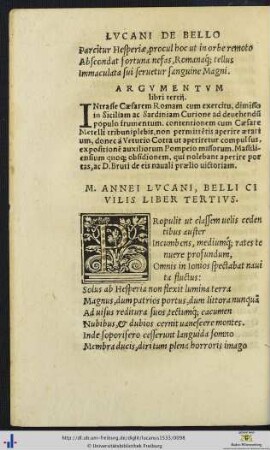 LVCANI DE BELLO
Parcitur Hesperiæ, procul hoc ut in orbe remoto
Abscondat fortuna nefas, Romanaq; tellus
Immaculata sui seruetur sanguine Magni.
ARGVMENTVM
libri tertij.
INtrasse Cæsarem Romam cum exercitu, dimisso
in Siciliam ac Sardiniam Curione ad deuehendū
populo frumentum. contentionem cum Cæsare
Metelli tribuni plebis, non permittētis aperire ærari
um, donec à Veturio Cotta ut aperiretur compulsus.
expositionē auxiliorum Pompeio missorum. Massili
ensium quoq; obsidionem, qui nolebant aperire por
tas, ac D. Bruti de eis nauali prælio uictoriam.
M. ANNEI LVCANI, BELLI CI
VILIS LIBER TERTIVS.
PRopulit ut classem uelis ceden
tibus auster
Incumbens, mediumq; rates te
nuere profundum,
Omnis in Ionios spectabat naui
ta fluctus:
Solus ab Hesperia non flexit lumina terra
Magnus, dum patrios portus, dum littora nunquā
Ad uisus reditura suos, tectumq; cacumen
Nubibus, & dubios cernit uanescere montes.
Inde soporifero cesserunt languida somno
Membra ducis, diri tum plena horroris imago
http://dl.ub.uni-freiburg.de/diglit/lucanus1533/0098
© Universitätsbibliothek Freiburg